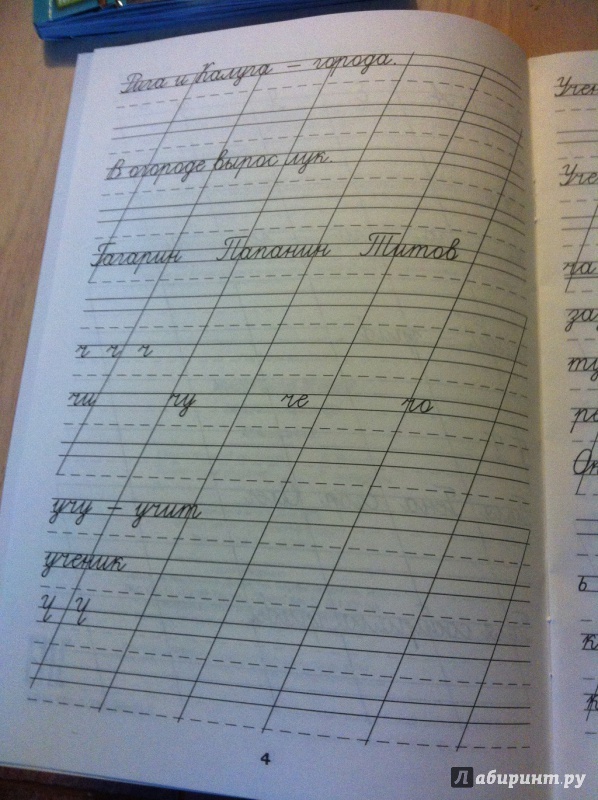 Рига и Калуга – города.
В огороде вырос лук.
Гагарин Папанин Титов
ч ч ч
чи чу че чо
учу – учит
ученик
Ч Ч
4
Учен
Уче
ча
ту
ь
Лабиринт.ру